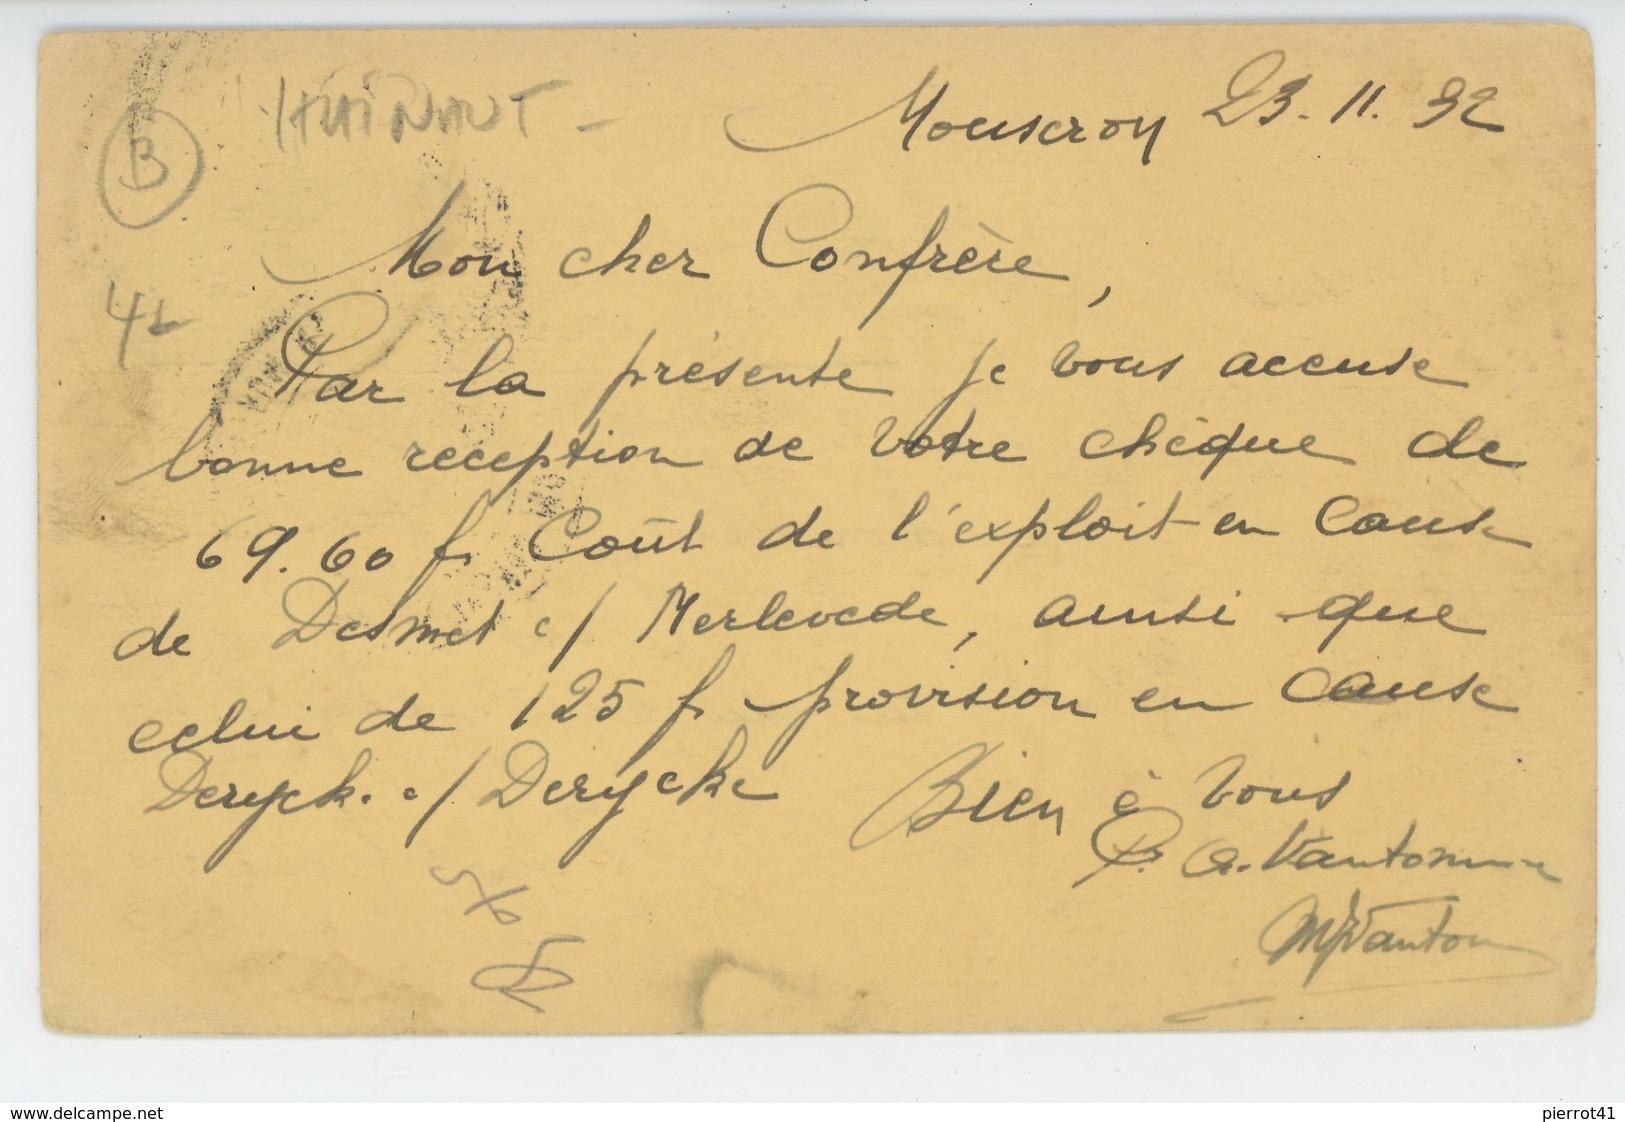 HAINAUT -
B
Mouscron 23.11.32
Mon cher Confrère,
42
Par la présente je vous accuse
bonne reception de votre chèque de
69.60 f. Coût de l'exploit en cause
de Desmet c/ Merlevede, ainsi que
celui de 125 f provision en cause
Deryck. c/ Derycke Bien à vous
P. A. Vantomme
www.delcampe.net
pierrot41